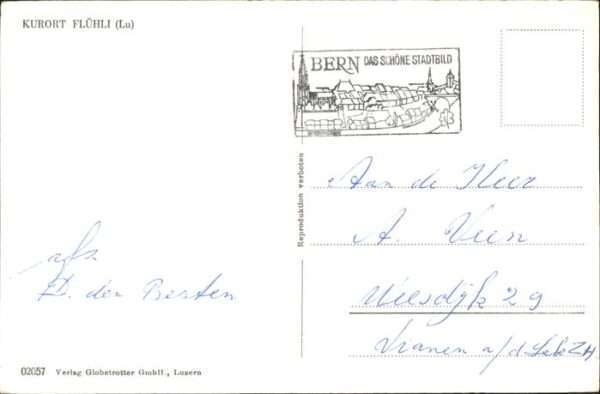 KURORT FLÜHLI (Lu)
BERN DAS SCHÖNE STADTBILD
Reproduktion verboten
Aan de Heer
A. Veen
29
Vianen a/d Lek ZH
afz
den Besten
02057 Verlag Globetrotter GmbH., Luzern